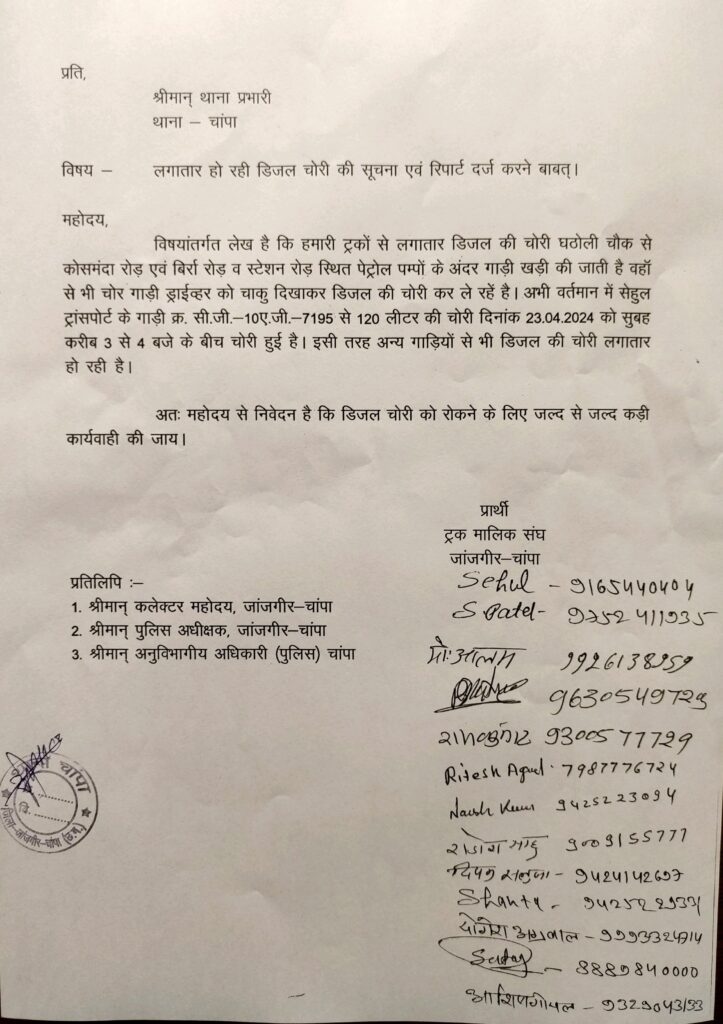 प्रति,
श्रीमान् थाना प्रभारी
थाना – चांपा
विषय – लगातार हो रही डिजल चोरी की सूचना एवं रिपार्ट दर्ज करने बाबत्।
महोदय,
विषयांतर्गत लेख है कि हमारी ट्रकों से लगातार डिजल की चोरी घठोली चौक से
कोसमंदा रोड़ एवं बिर्रा रोड़ व स्टेशन रोड़ स्थित पेट्रोल पम्पों के अंदर गाड़ी खड़ी की जाती है वहॉ
से भी चोर गाड़ी ड्राईव्हर को चाकु दिखाकर डिजल की चोरी कर ले रहें है। अभी वर्तमान में सेहुल
ट्रांसपोर्ट के गाड़ी क्र. सी.जी.–10ए.जी.–7195 से 120 लीटर की चोरी दिनांक 23.04.2024 को सुबह
करीब 3 से 4 बजे के बीच चोरी हुई है। इसी तरह अन्य गाड़ियों से भी डिजल की चोरी लगातार
हो रही है।
अतः महोदय से निवेदन है कि डिजल चोरी को रोकने के लिए जल्द से जल्द कड़ी
कार्यवाही की जाय।
प्रार्थी
ट्रक मालिक संघ
जांजगीर–चांपा
प्रतिलिपि :–
1. श्रीमान् कलेक्टर महोदय, जांजगीर–चांपा
2. श्रीमान् पुलिस अधीक्षक, जांजगीर–चांपा
3. श्रीमान् अनुविभागीय अधिकारी (पुलिस) चांपा
Sehul – 9165440404
S Patel – 9752411935
मो: आलम 9926138959
9630549729
9300577729
Ritesh 7987776724
9425223094
9009155777
9424142697
Shanty –
योगेश अग्रवाल –
8889840000
गोयल –
चांपा
जिला-जांजगीर-चांपा (छ.ग.)